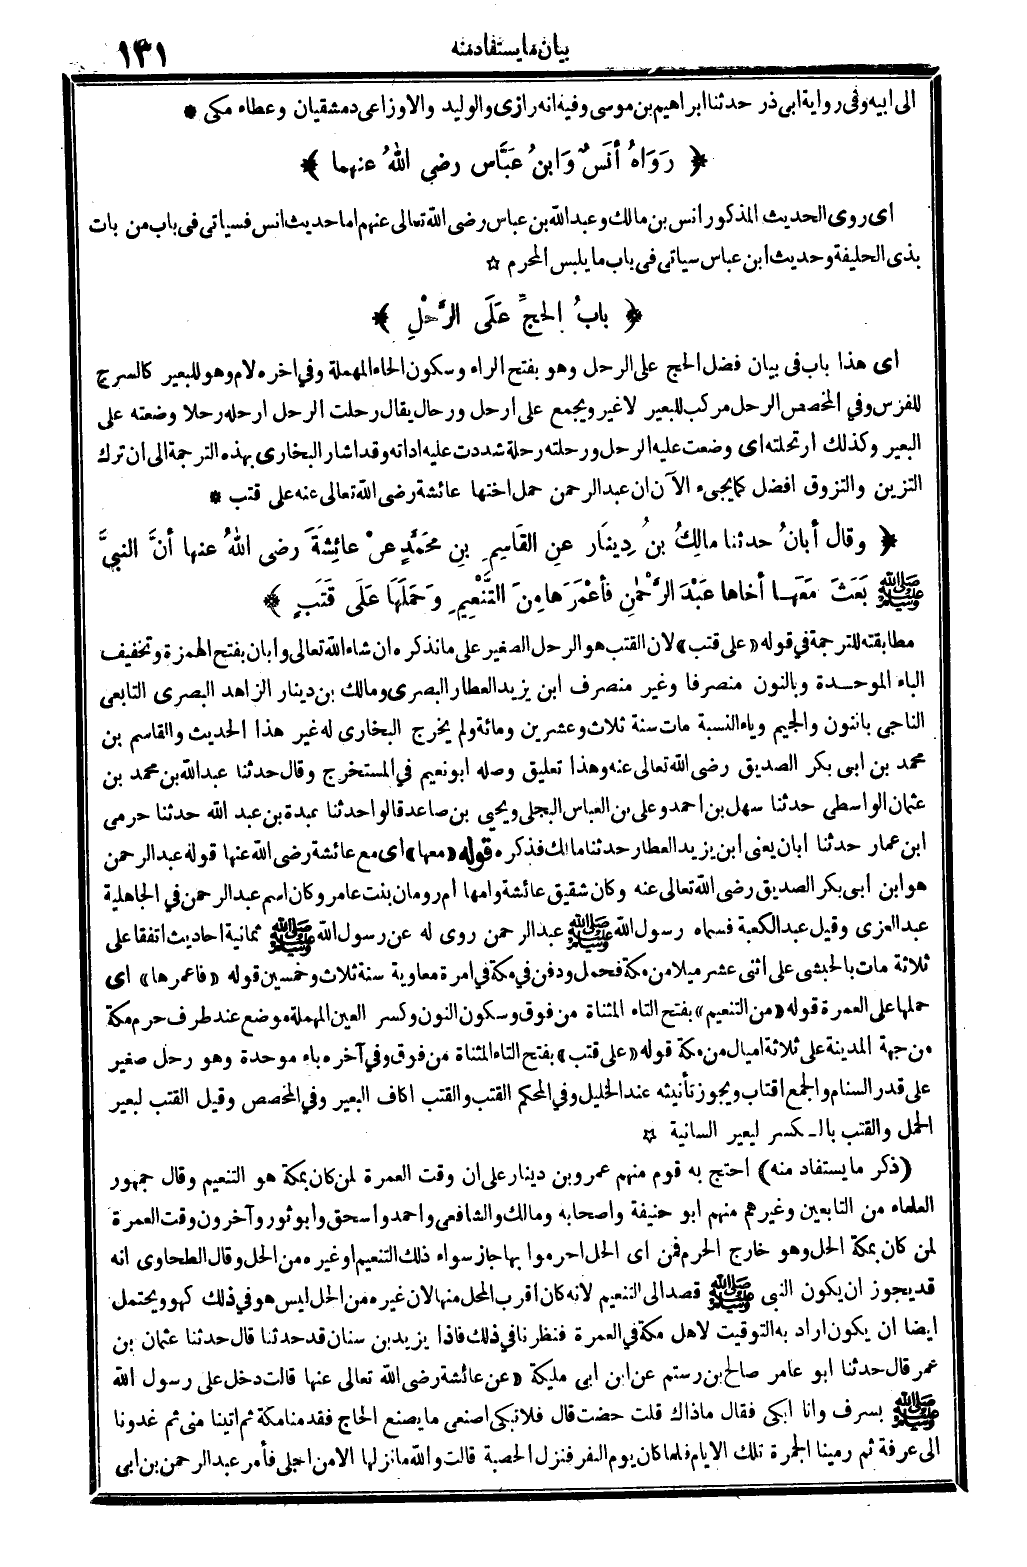 بيان ما يستفاد منه
١٣١
الى ابيه وفى رواية ابى ذر حدثنا ابراهيم بن موسى وفيه انه رازى والوليد والاوزاعى دمشقيان وعطاء مكى *
﴿ رَوَاهُ أنَسٌ وَابنُ عَبَّاس رضي اللهُ عنهما ﴾
اى روى الحديث المذكور انس بن مالك وعبد الله بن عباس رضى الله تعالى عنهم اما حديث انس فسيأتى فى باب من بات
بذى الحليفة وحديث ابن عباس سيأتى فى باب ما يلبس المحرم ☆
﴿ بابُ الحجِّ عَلَى الرَّحْلِ ﴾
اى هذا باب فى بيان فضل الحج على الرحل وهو بفتح الراء وسكون الحاء المهملة وفي اخره لام وهو للبعير كالسرج
للفرس وفي المخصص الرحل مركب للبعير لا غير ويجمع على ارحل ورحال يقال رحلت الرحل ارحله رحلا وضعته على
البعير وكذلك ارتحلته اى وضعت عليه الرحل ورحلته رحلة شددت عليه اداته وقد اشار البخارى بهذه الترجمة الى ان ترك
التزين والتزوق افضل كما يجىء الآن ان عبد الرحمن حمل اختها عائشة رضى الله تعالى عنه على قتب *
﴿ وقال أبانُ حدثنا مالِكُ بنُ دِينَار عنِ القَاسِمِ بنِ محَمَّدٍ عنْ عائِشةَ رضى اللهُ عنها أنَّ النبيَّ
ﷺ بَعَثَ مَعَهَا أخاها عبْدَ الرَّحْمٰنِ فأعْمَرَها مِنَ التَّنْعِيمِ وحَمَلَهَا عَلَى قَتَبٍ ﴾
مطابقته للترجمة في قوله «على قتب» لان القتب هو الرحل الصغير على ما نذكره ان شاء الله تعالى وابان بفتح الهمزة وتخفيف
الباء الموحدة وبالنون منصرفا وغير منصرف ابن يزيد العطار البصرى ومالك بن دينار الزاهد البصرى التابعى
الناجى بالنون والجيم وياء النسبة مات سنة ثلاث وعشرين ومائة ولم يخرج البخارى له غير هذا الحديث والقاسم بن
محمد بن ابى بكر الصديق رضى الله تعالى عنه وهذا تعليق وصله ابو نعيم في المستخرج وقال حدثنا عبد الله بن محمد بن
عثمان الواسطى حدثنا سهل بن احمد وعلى بن العباس البجلى ويحيى بن صاعد قالوا حدثنا عبدة بن عبد الله حدثنا حرمى
ابن عمار حدثنا ابان يعنى ابن يزيد العطار حدثنا مالك فذكره قوله «معها» اى مع عائشة رضى الله عنها قوله عبد الرحمن
هو ابن ابى بكر الصديق رضى الله تعالى عنه وكان شقيق عائشة وامها ام رومان بنت عامر وكان اسم عبد الرحمن في الجاهلية
عبد العزى وقيل عبد الكعبة فسماه رسول الله ﷺ عبد الرحمن روى له عن رسول الله ﷺ ثمانية احاديث اتفقا على
ثلاثة مات بالحبشى على اثنى عشر ميلا من مكة فحمل ودفن في مكة في امرة معاوية سنة ثلاث وخمسين قوله «فاعمرها» اى
حملها على العمرة قوله «من التنعيم» بفتح التاء المثناة من فوق وسكون النون وكسر العين المهملة موضع عند طرف حرم مكة
من جهة المدينة على ثلاثة اميال من مكة قوله «على قتب» بفتح التاء المثناة من فوق وفي آخره باء موحدة وهو رحل صغير
على قدر السنام والجمع اقتاب ويجوز تأنيثه عند الخليل وفي المحكم القتب والقتب اكاف البعير وفي المخصص وقيل القتب لبعير
الحمل والقتب بالـكسر لبعير السانية ☆
(ذكر ما يستفاد منه) احتج به قوم منهم عمرو بن دينار على ان وقت العمرة لمن كان بمكة هو التنعيم وقال جمهور
العلماء من التابعين وغيرهم منهم ابو حنيفة واصحابه ومالك والشافعى واحمد واسحق وابو ثور وآخرون وقت العمرة
لمن كان بمكة الحل وهو خارج الحرم فمن اى الحل احرموا بها جاز سواء ذلك التنعيم او غيره من الحل وقال الطحاوى انه
قد يجوز ان يكون النبى ﷺ قصد الى التنعيم لانه كان اقرب المحل منها لان غيره من الحل ليس هو في ذلك كهو ويحتمل
ايضا ان يكون اراد به التوقيت لاهل مكة في العمرة فنظرنا في ذلك فاذا يزيد بن سنان قد حدثنا قال حدثنا عثمان بن
عمر قال حدثنا ابو عامر صالح بن رستم عن ابن ابى مليكة «عن عائشة رضى الله تعالى عنها قالت دخل على رسول الله
ﷺ بسرف وانا ابكى فقال ماذاك قلت حضت قال فلا تبكى اصنعى ما يصنع الحاج فقدمنا مكة ثم اتينا منى ثم غدونا
الى عرفة ثم رمينا الجمرة تلك الايام فلما كان يوم النفر فنزل الحصبة قالت والله ما نزلها الا من اجلى فأمر عبد الرحمن بن ابى